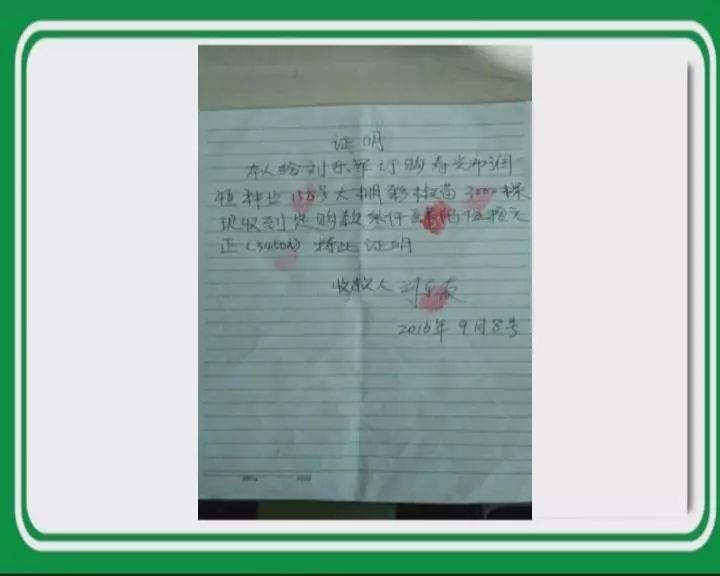 证明
本人给刘东军订购寿光市润
恒种业158号大棚彩椒苗3000株
现收到定购款叁仟肆佰伍拾元
正（3450元）特此证明
收款人 刘
2016年9月8号